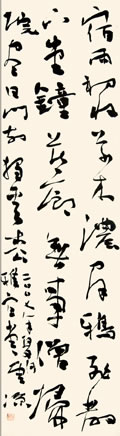 宿雨初收草木濃群鴉飛散
下堂鐘長廊無事僧歸
院盡日門前獨看松